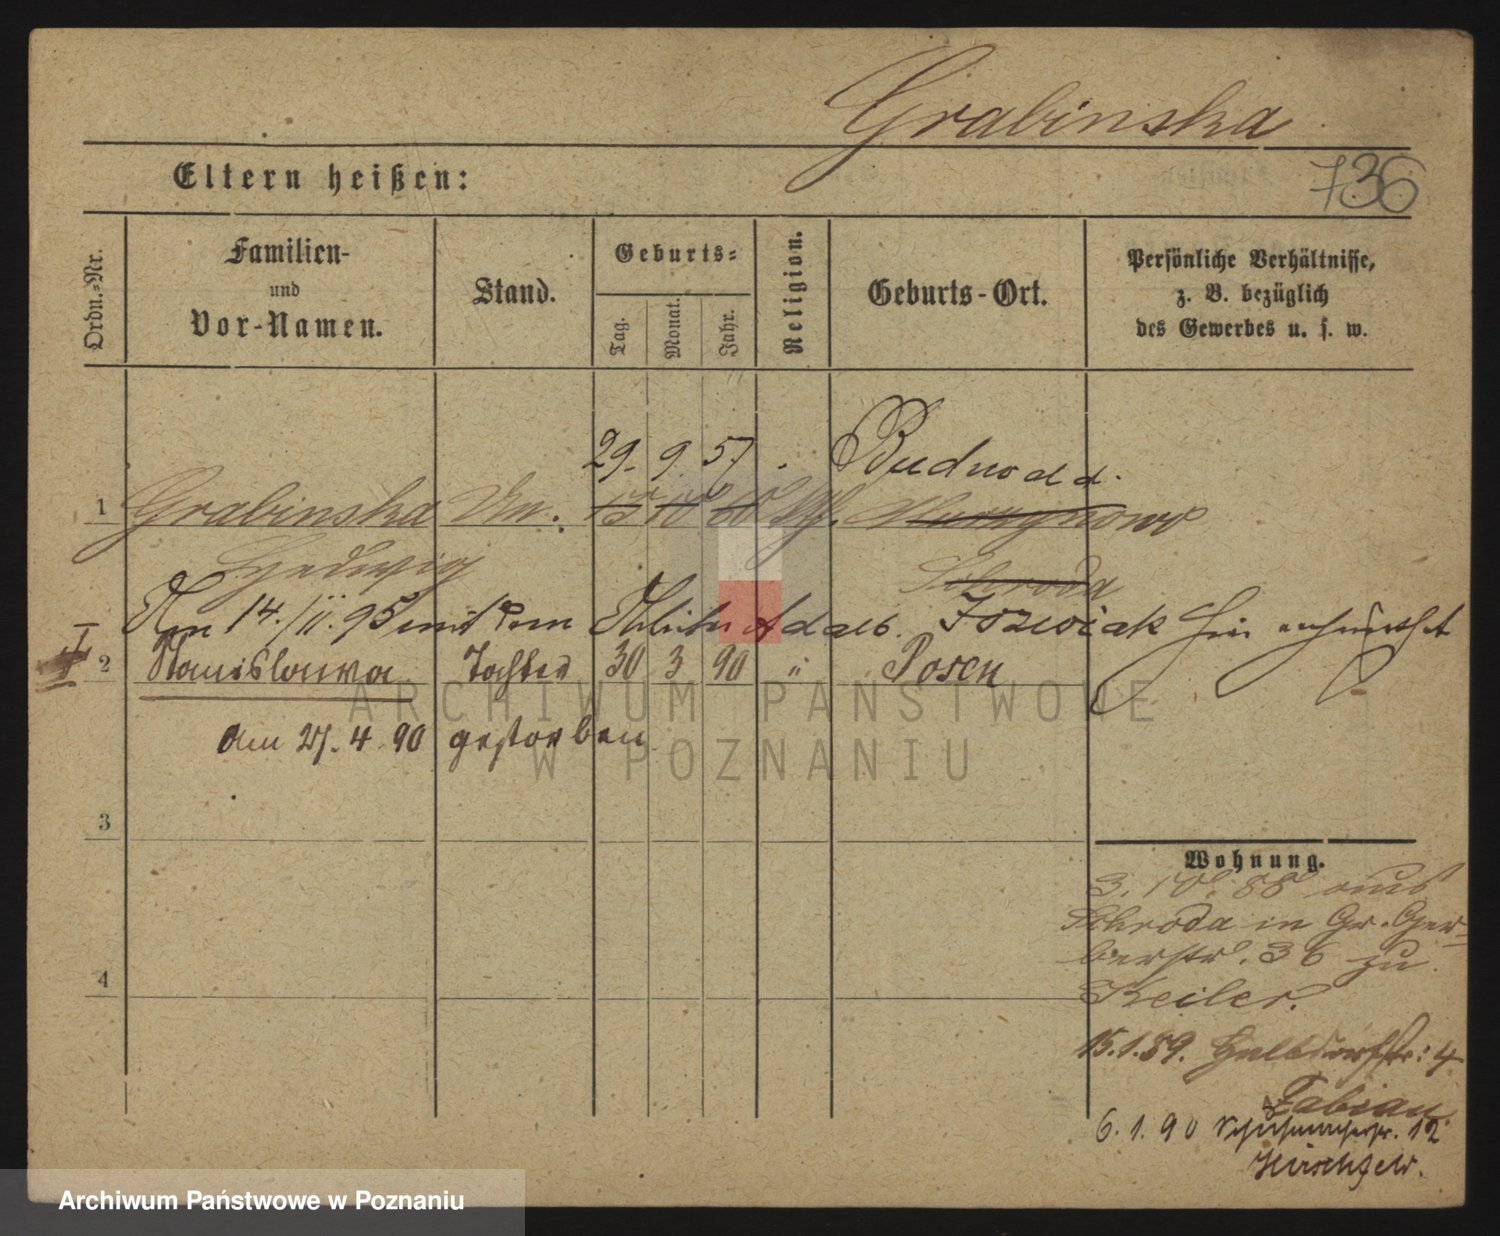 Grabinska
Eltern heißen:
736
Ordn.-Nr.
Familien-
und
Vor-Namen.
Stand.
Geburts-
Tag.
Monat.
Jahr.
Religion.
Geburts-Ort.
Persönliche Verhältnisse,
z. B. bezüglich
des Gewerbes u. s. w.
29. 9. 57
1 Grabinska
Hedwig
Schroda
Am 14./II. 95 mit dem Adalb. Jozwiak hier
2 Stanislawa Tochter 30 3 90 " Posen
Am 27. 4. 90 gestorben
ARCHIWUM PAŃSTWOWE
W POZNANIU
3
4
Wohnung.
3. 10. 88 aus
Schroda in Gr. Ger-
berstr. 36 zu
Keiler.
15.1.89. Halbdorfstr. 4
Fabian
6. 1. 90 Schuhmacherstr. 12
Hirschfeld.
Archiwum Państwowe w Poznaniu